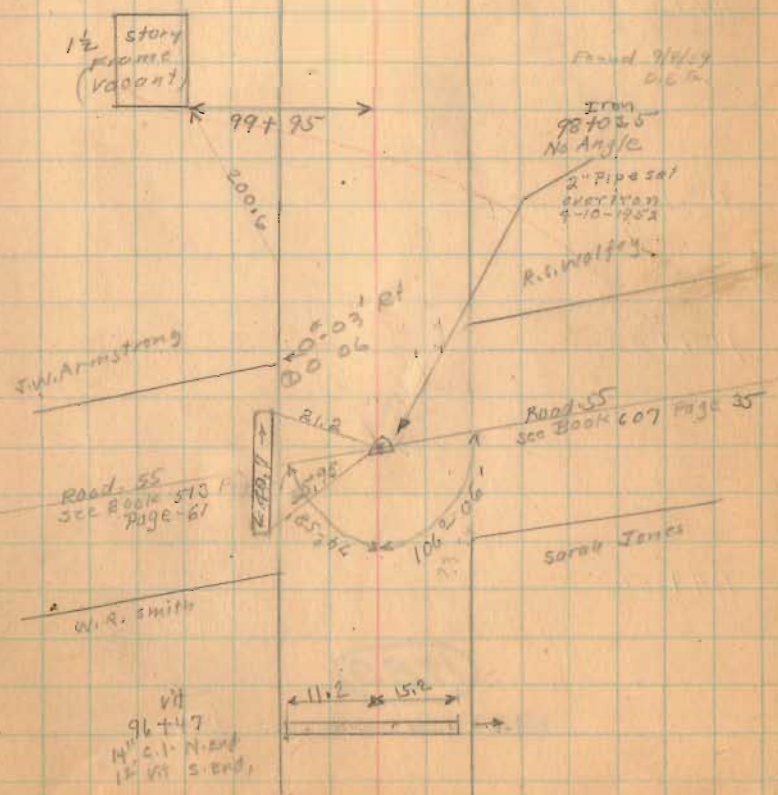 1½ story
Frame
(Vacant)
99+95
200.6
Found 9/8/59
Iron
98+035
No Angle
2" Pipe set
over iron
9-10-1952
R.S. Wolfey
J.W. Armstrong
0°-03' Rt
0 06
21.2
Road 55
see Book 607 Page 35
Road. 55
see Book 513
Page-61
106°-06'
Sarah Jones
W.R. Smith
11.2 15.2
vit
96+47
14" C.I. N.end
12" Vit S.end,